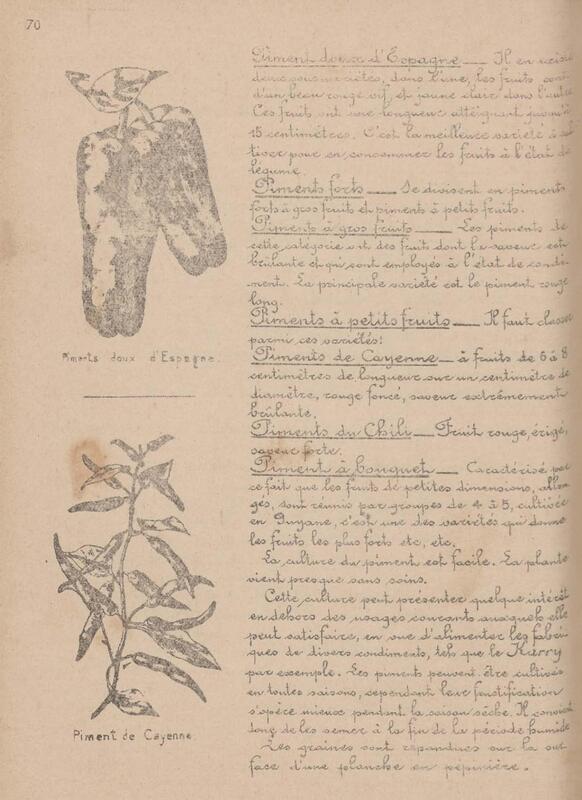 70
Piment doux d'Espagne — Il en existe
deux sous variétés, dans l'une, les fruits sont
d'un beau rouge vif, et jaune clair dans l'autre
Ces fruits ont une longueur atteignant jusqu'à
15 centimètres. C'est la meilleure variété à cul
tiver pour en consommer les fruits à l'état de
légume.
Piments forts — Se divisent en piments
forts à gros fruits et piments à petits fruits.
Piments à gros fruits — Les piments de
cette catégorie ont des fruit dont la saveur est
brûlante et qui sont employés à l'état de condi-
ment. La principale variété est le piment rouge
long.
Piments à petits fruits — Il faut classer
parmi ces variétés:
Piments de Cayenne — à fruits de 6 à 8
centimètres de longueur sur un centimètre de
diamètre, rouge foncé, saveur extrêmement
brûlante.
Piments du Chili — Fruit rouge, érigé,
saveur forte.
Piment à bouquet — Caractérisé par
ce fait que les fruits de petites dimensions, allon
gés, sont réunis par groupes de 4 à 5, cultivée
en Guyane, c'est une des variétés qui donne
les fruits les plus forts etc, etc.
La culture du piment est facile. La plante
vient presque sans soins.
Cette culture peut présenter quelque intérêt
en dehors des usages courants auxquels elle
peut satisfaire, en vue d'alimenter les fabri
ques de divers condiments, tels que le Karry
par exemple. Les piments peuvent être cultivés
en toutes saisons, cependant leur fructification
s'opère mieux pendant la saison sèche. Il convient
donc de les semer à la fin de la période humide
Les graines sont répandues sur la sur
face d'une planche en pépinière.
Piments doux d'Espagne.
Piment de Cayenne